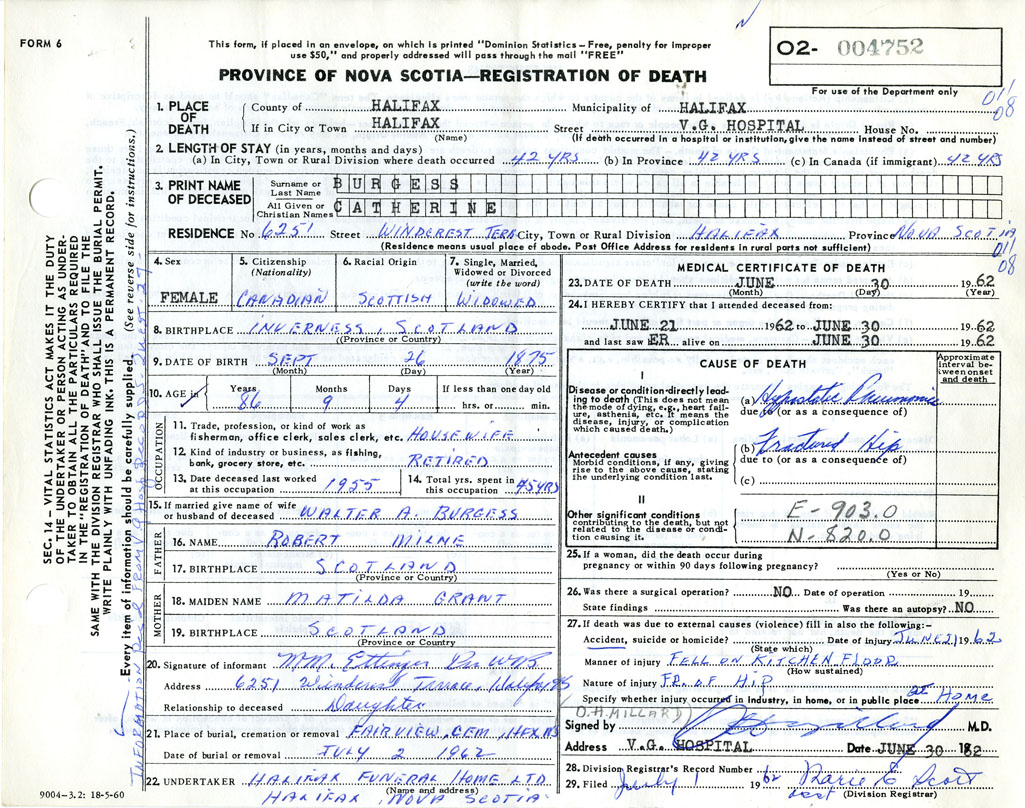 FORM 6
This form, if placed in an envelope, on which is printed "Dominion Statistics – Free, penalty for improper
use $50," and properly addressed will pass through the mail "FREE"
PROVINCE OF NOVA SCOTIA—REGISTRATION OF DEATH
02- 004752
For use of the Department only
011
08
1. PLACE OF DEATH County of HALIFAX Municipality of HALIFAX
If in City or Town HALIFAX Street V.G. HOSPITAL House No.
(Name) (If death occurred in a hospital or institution, give the name instead of street and number)
2. LENGTH OF STAY (in years, months and days)
(a) In City, Town or Rural Division where death occurred 42 YRS (b) In Province 42 YRS (c) In Canada (if immigrant) 42 YRS
3. PRINT NAME OF DECEASED Surname or Last Name BURGESS
All Given or Christian Names CATHERINE
RESIDENCE No 6251 Street WINDCREST TERR City, Town or Rural Division HALIFAX Province NOVA SCOTIA
(Residence means usual place of abode. Post Office Address for residents in rural parts not sufficient)
011
08
4. Sex FEMALE
5. Citizenship (Nationality) CANADIAN
6. Racial Origin SCOTTISH
7. Single, Married, Widowed or Divorced (write the word) WIDOWED
8. BIRTHPLACE INVERNESS, SCOTLAND
(Province or Country)
9. DATE OF BIRTH SEPT 26 1875
(Month) (Day) (Year)
10. AGE in Years Months Days If less than one day old
86 9 4 hrs. or min.
OCCUPATION
11. Trade, profession, or kind of work as
fisherman, office clerk, sales clerk, etc. HOUSEWIFE
12. Kind of industry or business, as fishing,
bank, grocery store, etc. RETIRED
13. Date deceased last worked at this occupation 1955
14. Total yrs. spent in this occupation 45 YRS
15. If married give name of wife
or husband of deceased WALTER A. BURGESS
FATHER
16. NAME ROBERT MILNE
17. BIRTHPLACE SCOTLAND
(Province or Country)
MOTHER
18. MAIDEN NAME MATILDA GRANT
19. BIRTHPLACE SCOTLAND
(Province or Country)
20. Signature of informant Ettinger
Address 6251 Terrace,
Relationship to deceased Daughter
21. Place of burial, cremation or removal FAIRVIEW CEM, HFX NS
Date of burial or removal JULY 2 1962
22. UNDERTAKER HALIFAX FUNERAL HOME LTD
(Name and address)
HALIFAX, NOVA SCOTIA
9004-3.2: 18-5-60
MEDICAL CERTIFICATE OF DEATH
23. DATE OF DEATH JUNE 30 1962
(Month) (Day) (Year)
24. I HEREBY CERTIFY that I attended deceased from:
JUNE 21 1962 to JUNE 30 1962
and last saw ER alive on JUNE 30 1962
CAUSE OF DEATH
Approximate interval between onset and death
I
Disease or condition directly leading to death (This does not mean the mode of dying, e.g., heart failure, asthenia, etc. It means the disease, injury, or complication which caused death.)
(a) Hypostatic Pneumonia
due to (or as a consequence of)
Antecedent causes
Morbid conditions, if any, giving rise to the above cause, stating the underlying condition last.
(b) Fractured Hip
due to (or as a consequence of)
(c)
II
Other significant conditions
contributing to the death, but not related to the disease or condition causing it.
E-903.0
N-820.0
25. If a woman, did the death occur during
pregnancy or within 90 days following pregnancy?
(Yes or No)
26. Was there a surgical operation? NO Date of operation 19
State findings Was there an autopsy? NO
27. If death was due to external causes (violence) fill in also the following:–
Accident, suicide or homicide? Date of injury JUNE 21 1962
(State which)
Manner of injury FELL ON KITCHEN FLOOR
(How sustained)
Nature of injury FR. OF HIP
Specify whether injury occurred in industry, in home, or in public place at HOME
O.H. MILLARD
Signed by Millard M.D.
Address V.G. HOSPITAL Date JUNE 30 1962
28. Division Registrar's Record Number
29. Filed July 1 1962 Marie E Scott
dept (Division Registrar)
SEC. 14 – VITAL STATISTICS ACT MAKES IT THE DUTY
OF THE UNDERTAKER OR PERSON ACTING AS UNDER-
TAKER TO OBTAIN ALL THE PARTICULARS REQUIRED
IN THE "REGISTRATION OF DEATH" AND TO FILE THE
SAME WITH THE DIVISION REGISTRAR WHO SHALL ISSUE THE BURIAL PERMIT.
WRITE PLAINLY WITH UNFADING INK—THIS IS A PERMANENT RECORD.
Every item of information should be carefully supplied. (See reverse side for instructions.)
INFORMATION FROM